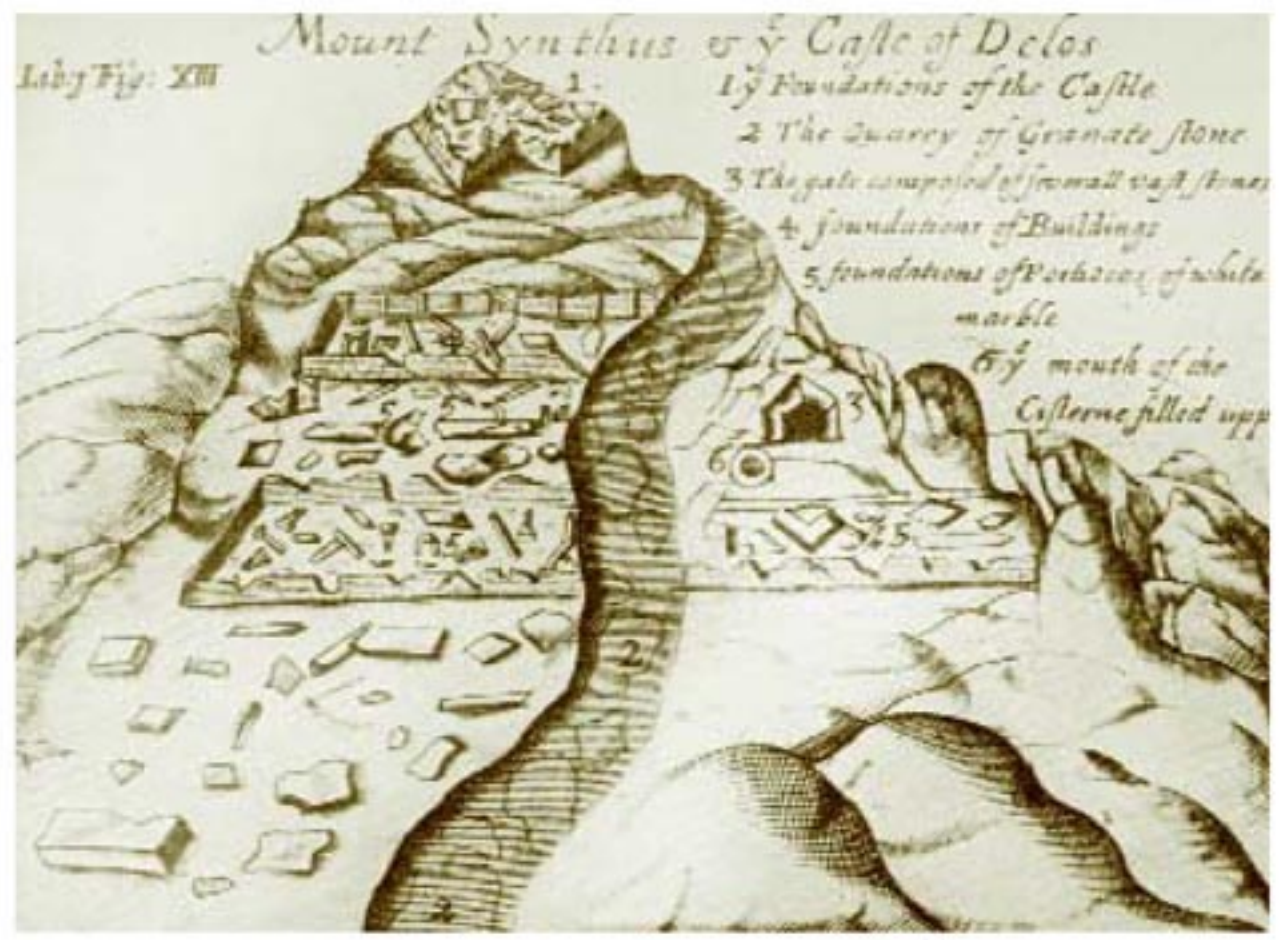 Mount Synthus & yͤ Castle of Delos
Lib: Fig: XIII
1.
1 yͤ Foundations of the Castle
2 The Quarry of Granate stone
3 The gate composed of small vast stones
4 foundations of Buildings
5 foundations of Porticos of white
marble
6 yͤ mouth of the
Cisterne filled upp
3
6
4
5
2
2